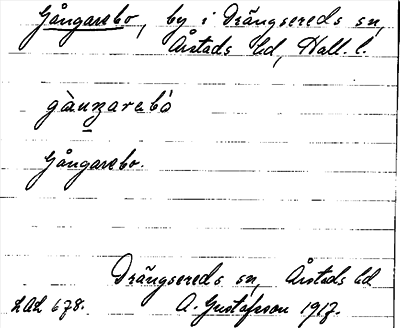 Gångarebo, by i Drängsereds sn,
Årstads hd, Hall. l.
gàuŋarebò
Gångarebo.
Drängsereds sn, Årstads hd
LAL 678. A. Gustafsson 1917.